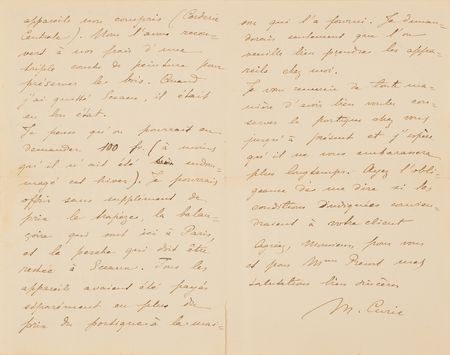 appareils non compris (Corderie
Centrale). Nous l'avons recou-
vert à nos frais d'une
triple couche de peinture pour
préserver les bois. Quand
j'ai quitté Sceaux, il était
en bon état.
Je pense qu'on pourrait en
demander 100 f. (à moins
qu'il n'ait été endom-
magé cet hiver). Je pourrais
offrir sans supplément de
prix le trapèze, la balan-
çoire qui sont ici à Paris,
et la perche qui doit être
restée à Sceaux. Tous les
appareils avaient été payés
séparément en plus du
prix du portique à la mai-
son qui l'a fourni. Je deman-
derais seulement que l'on
veuille bien prendre les appa-
reils chez moi.
Je vous remercie de toute ma-
nière d'avoir bien voulu con-
server le portique chez vous
jusqu'à présent et j'espère
qu'il ne vous embarrassera
plus longtemps. Ayez l'obli-
geance de me dire si les
conditions indiquées convien-
draient à votre client
Agréez, Monsieur, pour vous
et pour Mme mes
salutations bien sincères
M. Curie